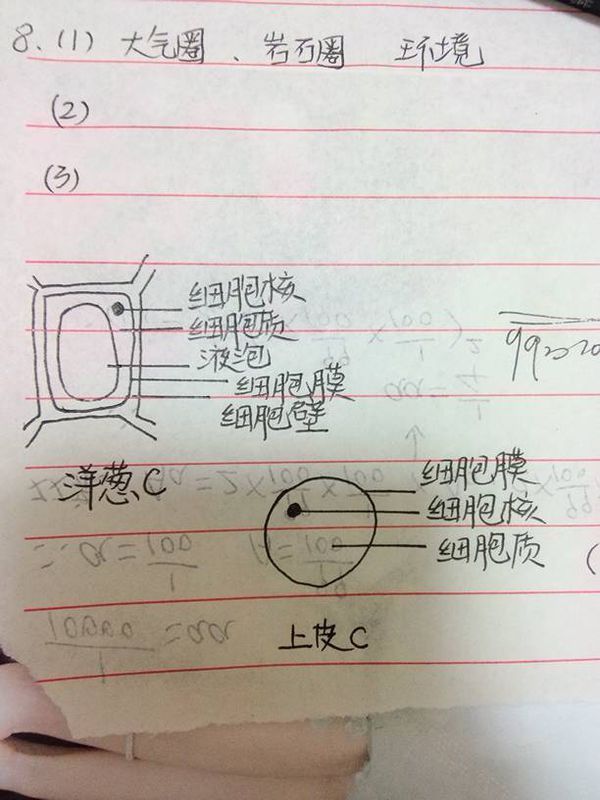 8、(1) 大气圈、岩石圈 环境
(2)
(3)
细胞核
细胞质
液泡
细胞膜
细胞壁
洋葱C
细胞膜
细胞核
细胞质
上皮C